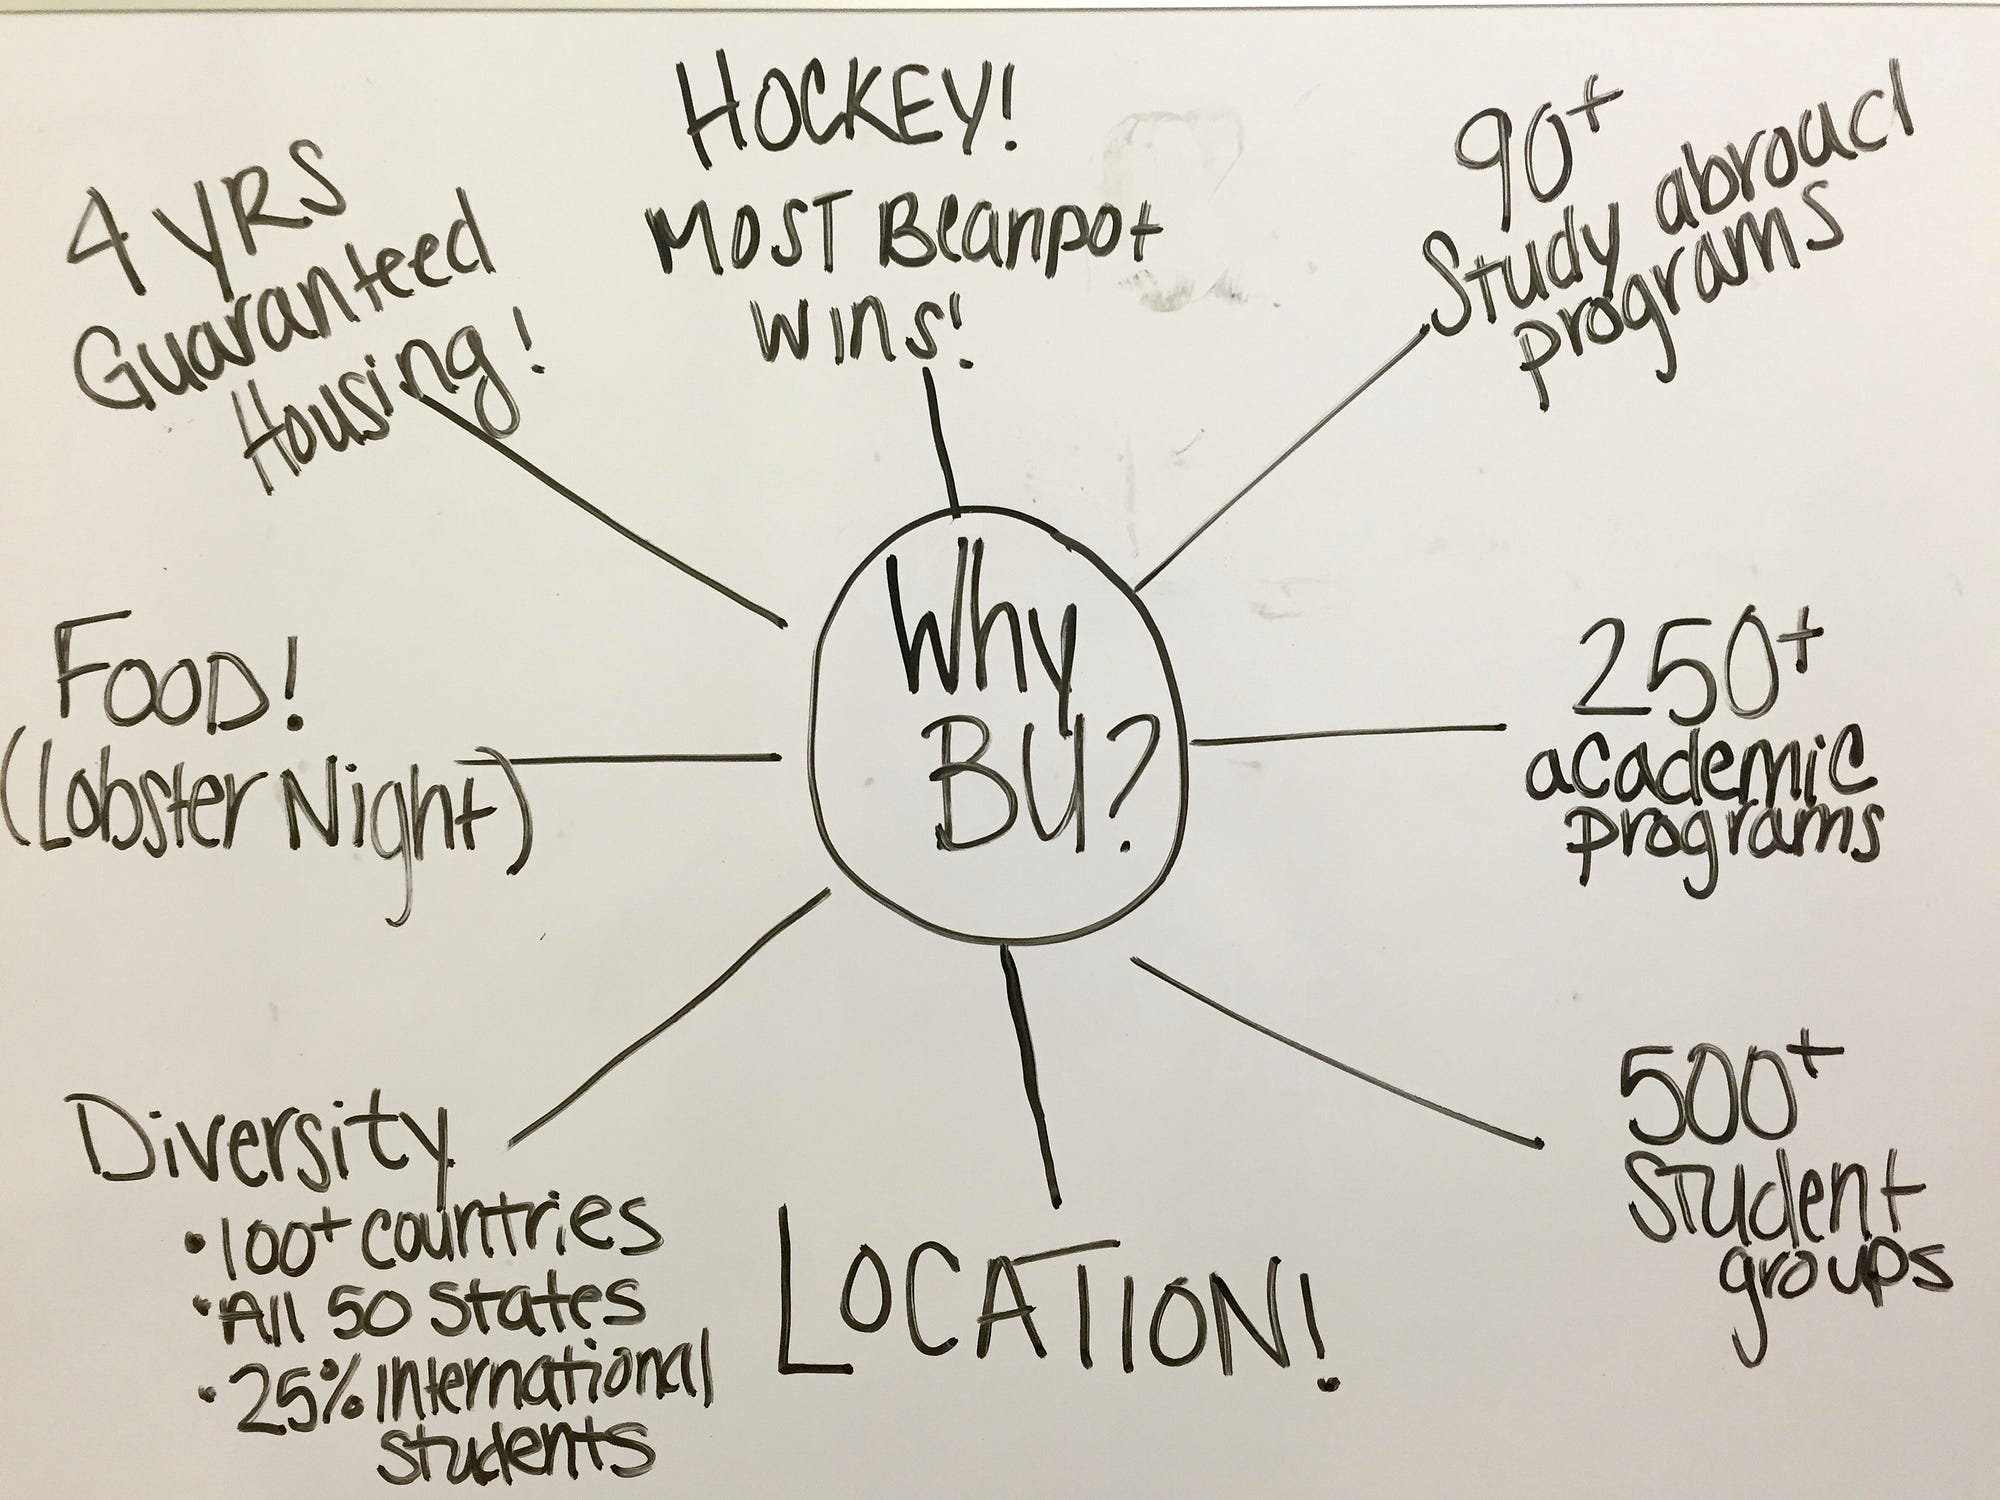 HOCKEY!
MOST Beanpot
WINS!
90+
Study abroad
programs
250+
academic
programs
500+
Student
groups
LOCATION!
Diversity
•100+ countries
•All 50 states
•25% International
students
FOOD!
(Lobster Night)
4 YRS
Guaranteed
Housing!
Why
BU?